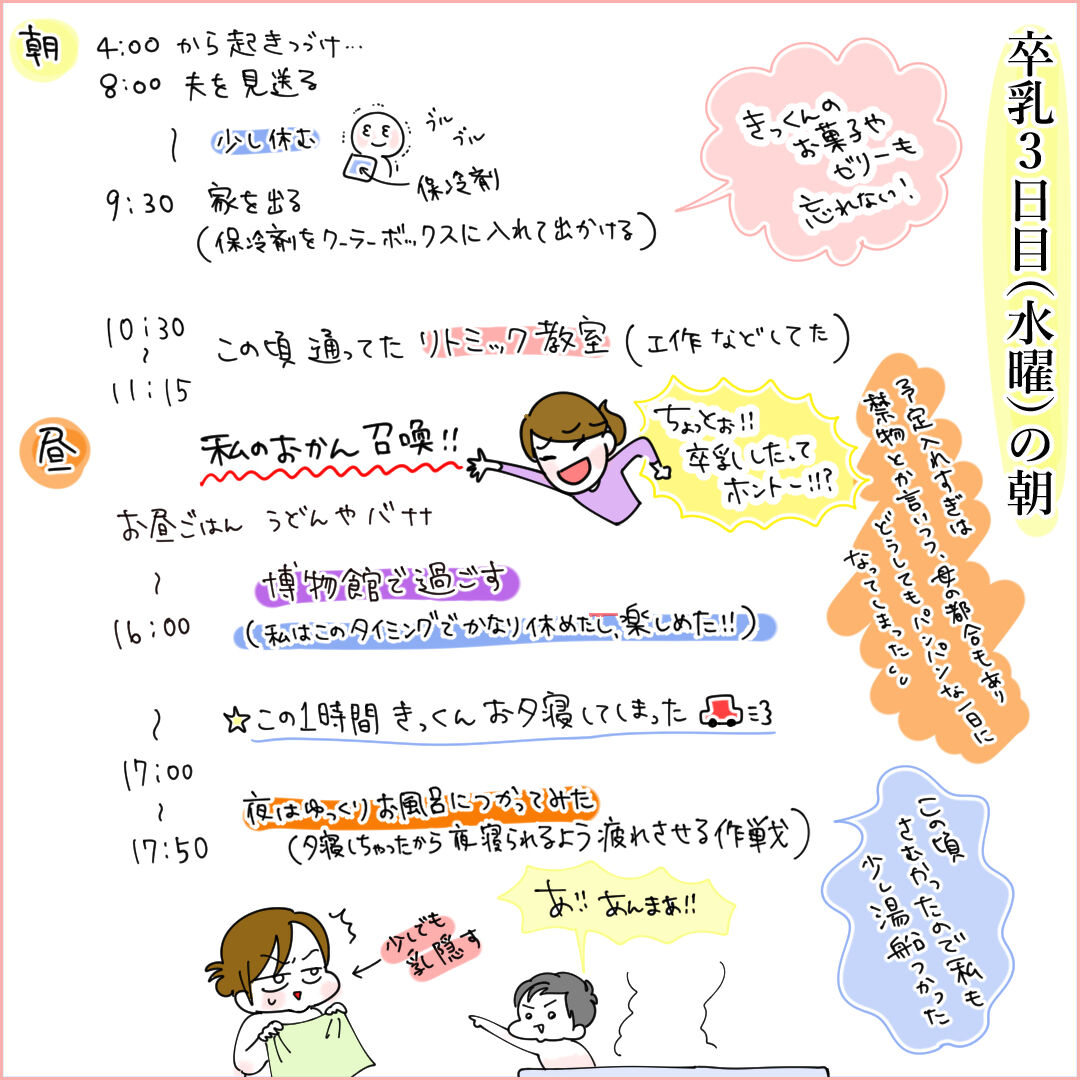 卒乳3日目(水曜)の朝
朝
4:00 から起きつづけ…
8:00 夫を見送る
〜 少し休む
ブル
ブル
保冷剤
9:30 家を出る
(保冷剤をクーラーボックスに入れて出かける)
きっくんの
お菓子や
ゼリーも
忘れない!
10:30
〜
11:15
この頃 通ってた リトミック教室 (工作などしてた)
昼
私のおかん召喚!!
ちょっとぉ!!
卒乳したって
ホントー!!?
お昼ごはん うどんやバナナ
〜 博物館で過ごす
16:00 (私はこのタイミングでかなり休めたし、楽しめた!!)
予定入れすぎは
禁物とか言いつつ、母の都合もあり
どうしてもパンパンな一日に
なってしまった
〜 ☆この1時間 きっくん お夕寝してしまった
17:00
〜
17:50
夜はゆっくりお風呂につかってみた
(夕寝しちゃったから夜寝られるよう疲れさせる作戦)
この頃
さむかったので私も
少し湯船つかった
少しでも
乳隠す
あ!! あんまぁ!!